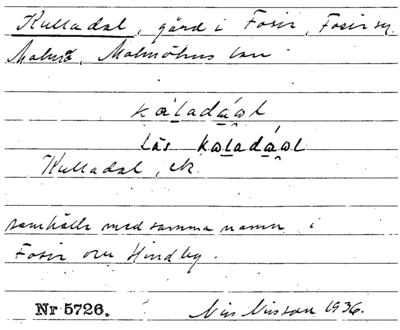 Kulladal, gård i Fosie, Fosie sn.
Malmö, Malmöhus län
kàladáal
Läs kaladáal
Kulladal, ek.
samhälle med samma namn i
Fosie och Hindby.
Nr 5726. Nils Nilsson 1936.